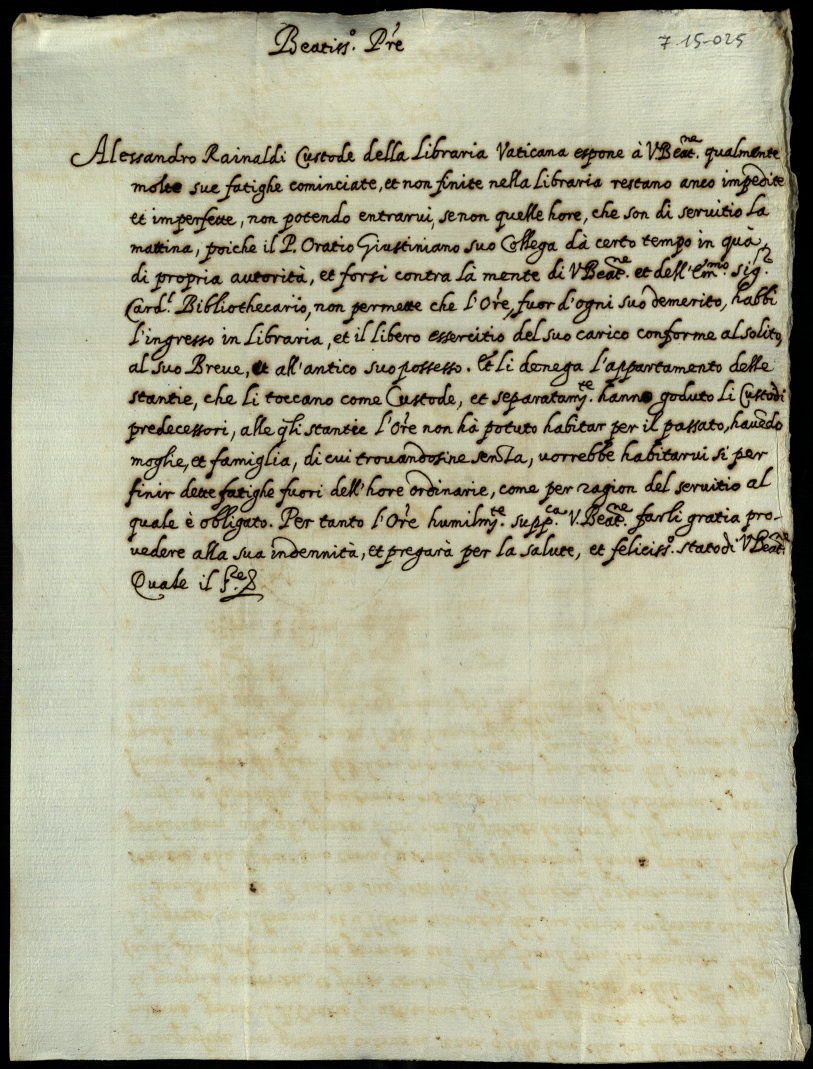 Beatiss.º P're
7-15-025
Alessandro Rainaldi Custode della Libraria Vaticana espone à V Beat.ne qualmente
molte sue fatighe cominciate, et non finite nella Libraria restano anco impedite
et imperfette, non potendo entrarvi, senon quelle hore, che son di servitio la
mattina, poiche il P. Oratio Giustiniano suo Collega dà certo tempo in quà,
di propria autorità, et forsi contra la mente di V Beat.ne et dell'Em.mo Sig.r
Card.l Bibliothecario, non permette che l'Ore, fuor d'ogni suo demerito, habbi
l'ingresso in Libraria, et il libero essercitio del suo carico conforme al solito,
al suo Breve, et all'antico suo possesso. Et li denega l'appartamento delle
stantie, che li toccano come Custode, et separatam.te hanno goduto li Custodi
predecessori, alle q'li stantie l'Ore non hà potuto habitar per il passato, havedo
moglie, et famiglia, di cui trovandosine senza, vorrebbe habitarvi si per
finir dette fatighe fuori dell'hore ordinarie, come per ragion del servitio al
quale è obligato. Per tanto l'Ore humilm.te supp.ca V. Beat.ne farli gratia pro-
vedere alla sua indennità, et pregarà per la salute, et feliciss.º stato di V Beat.ne
Quale il